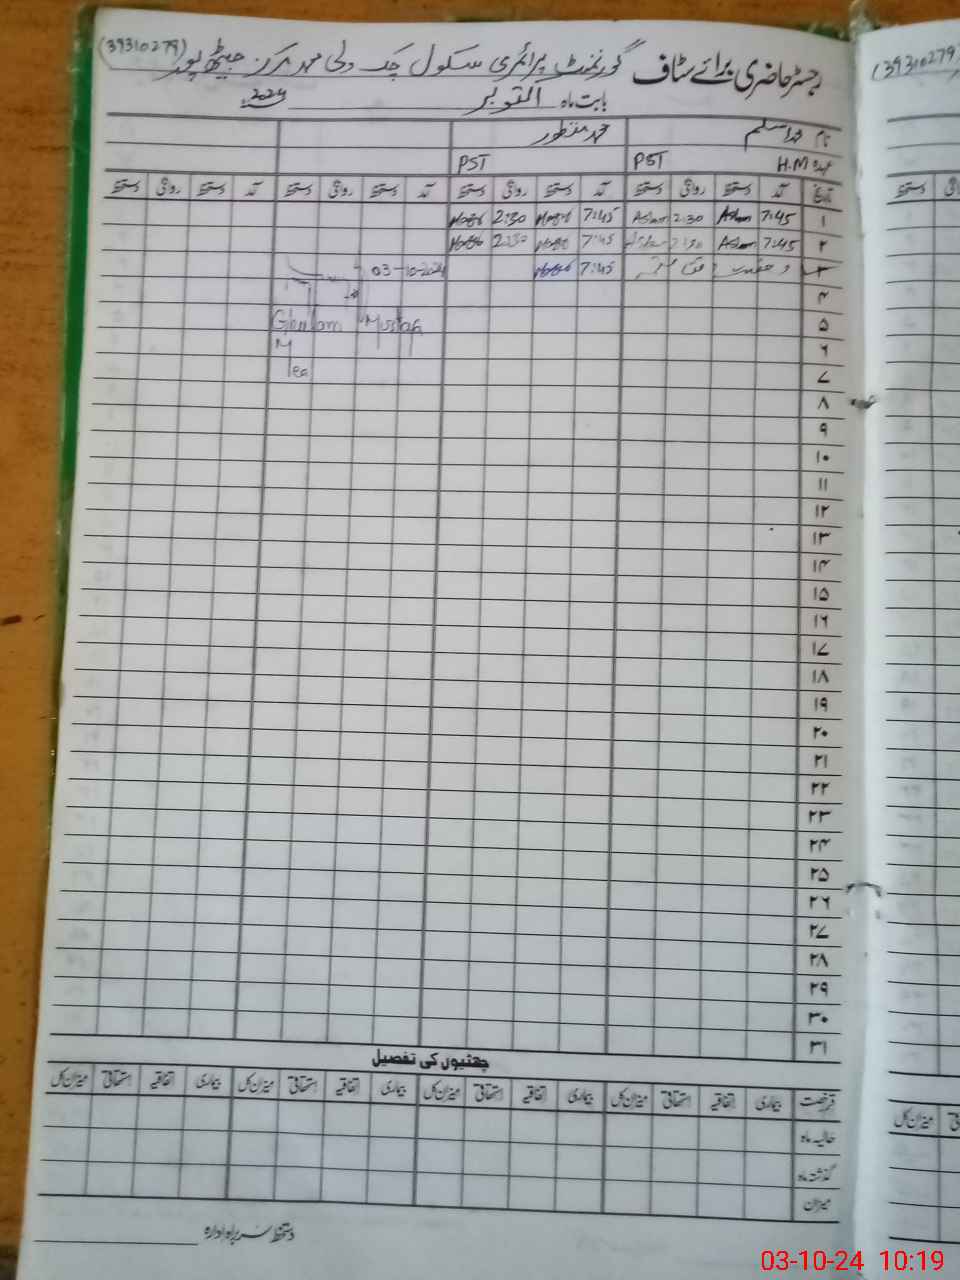 رجسٹر حاضری برائے سٹاف گورنمنٹ پرائمری سکول چک ولی محمد مرکز جیٹھ پور (39310279)
بابت ماہ اکتوبر 2024ء
نام محمد اسلم محمد منظور
عہدہ H.M PST PST
تاریخ آمد دستخط روانگی دستخط آمد دستخط روانگی دستخط آمد دستخط روانگی دستخط آمد دستخط روانگی دستخط
۱ 7:45 Aslam 2:30 Aslam 7:45 2:30
۲ 7:45 Aslam 2:30 Aslam 7:45 2:30
۳ 7:45 03-10-2024
۴
۵ Ghulam Mustafa
۶ M
۷ Tea
۸
۹
۱۰
۱۱
۱۲
۱۳
۱۴
۱۵
۱۶
۱۷
۱۸
۱۹
۲۰
۲۱
۲۲
۲۳
۲۴
۲۵
۲۶
۲۷
۲۸
۲۹
۳۰
۳۱
چھٹیوں کی تفصیل
قسم رخصت بیماری اتفاقیہ استحقاقی میزان کل بیماری اتفاقیہ استحقاقی میزان کل بیماری اتفاقیہ استحقاقی میزان کل بیماری اتفاقیہ استحقاقی میزان کل
حالیہ ماہ
گذشتہ ماہ
میزان
دستخط سربراہ ادارہ
(39310279)
دستخط
میزان کل
03-10-24 10:19